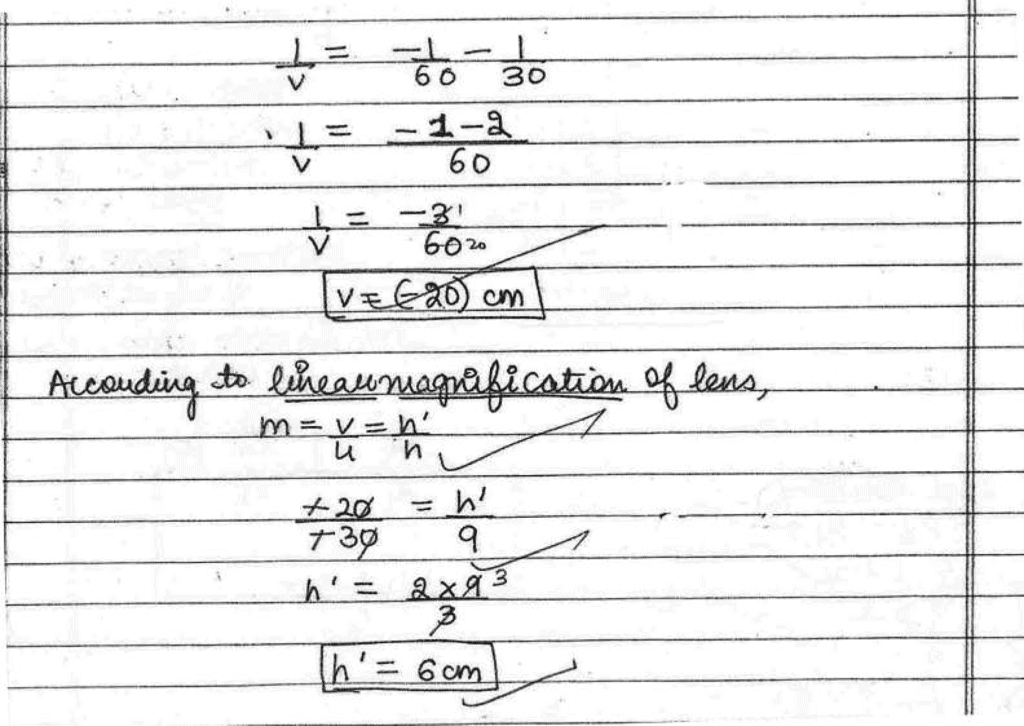 1/v = -1/60 - 1/30
1/v = -1-2/60
1/v = -3 1/60 20
v = (-20) cm
According to linear magnification of lens,
m = v/u = h'/h
-20/-30 = h'/9
h' = 2x9 3/3
h' = 6cm